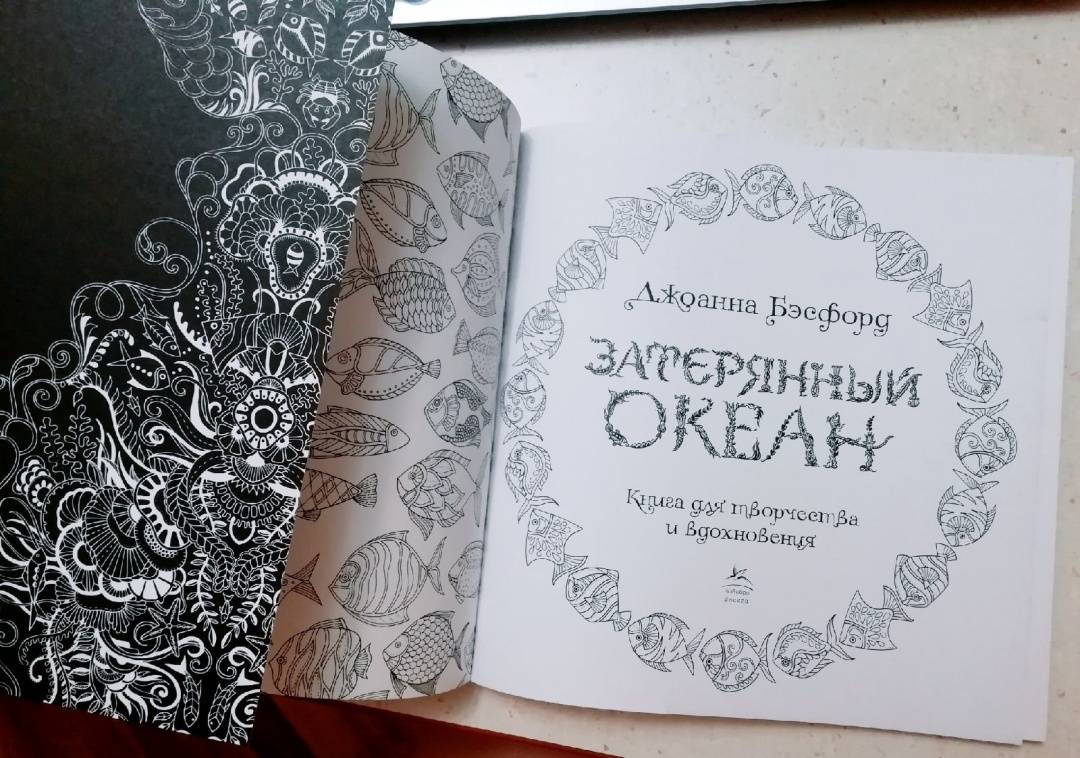 Джоанна Бэсфорд
ЗАТЕРЯННЫЙ
ОКЕАН
Книга для творчества
и вдохновения